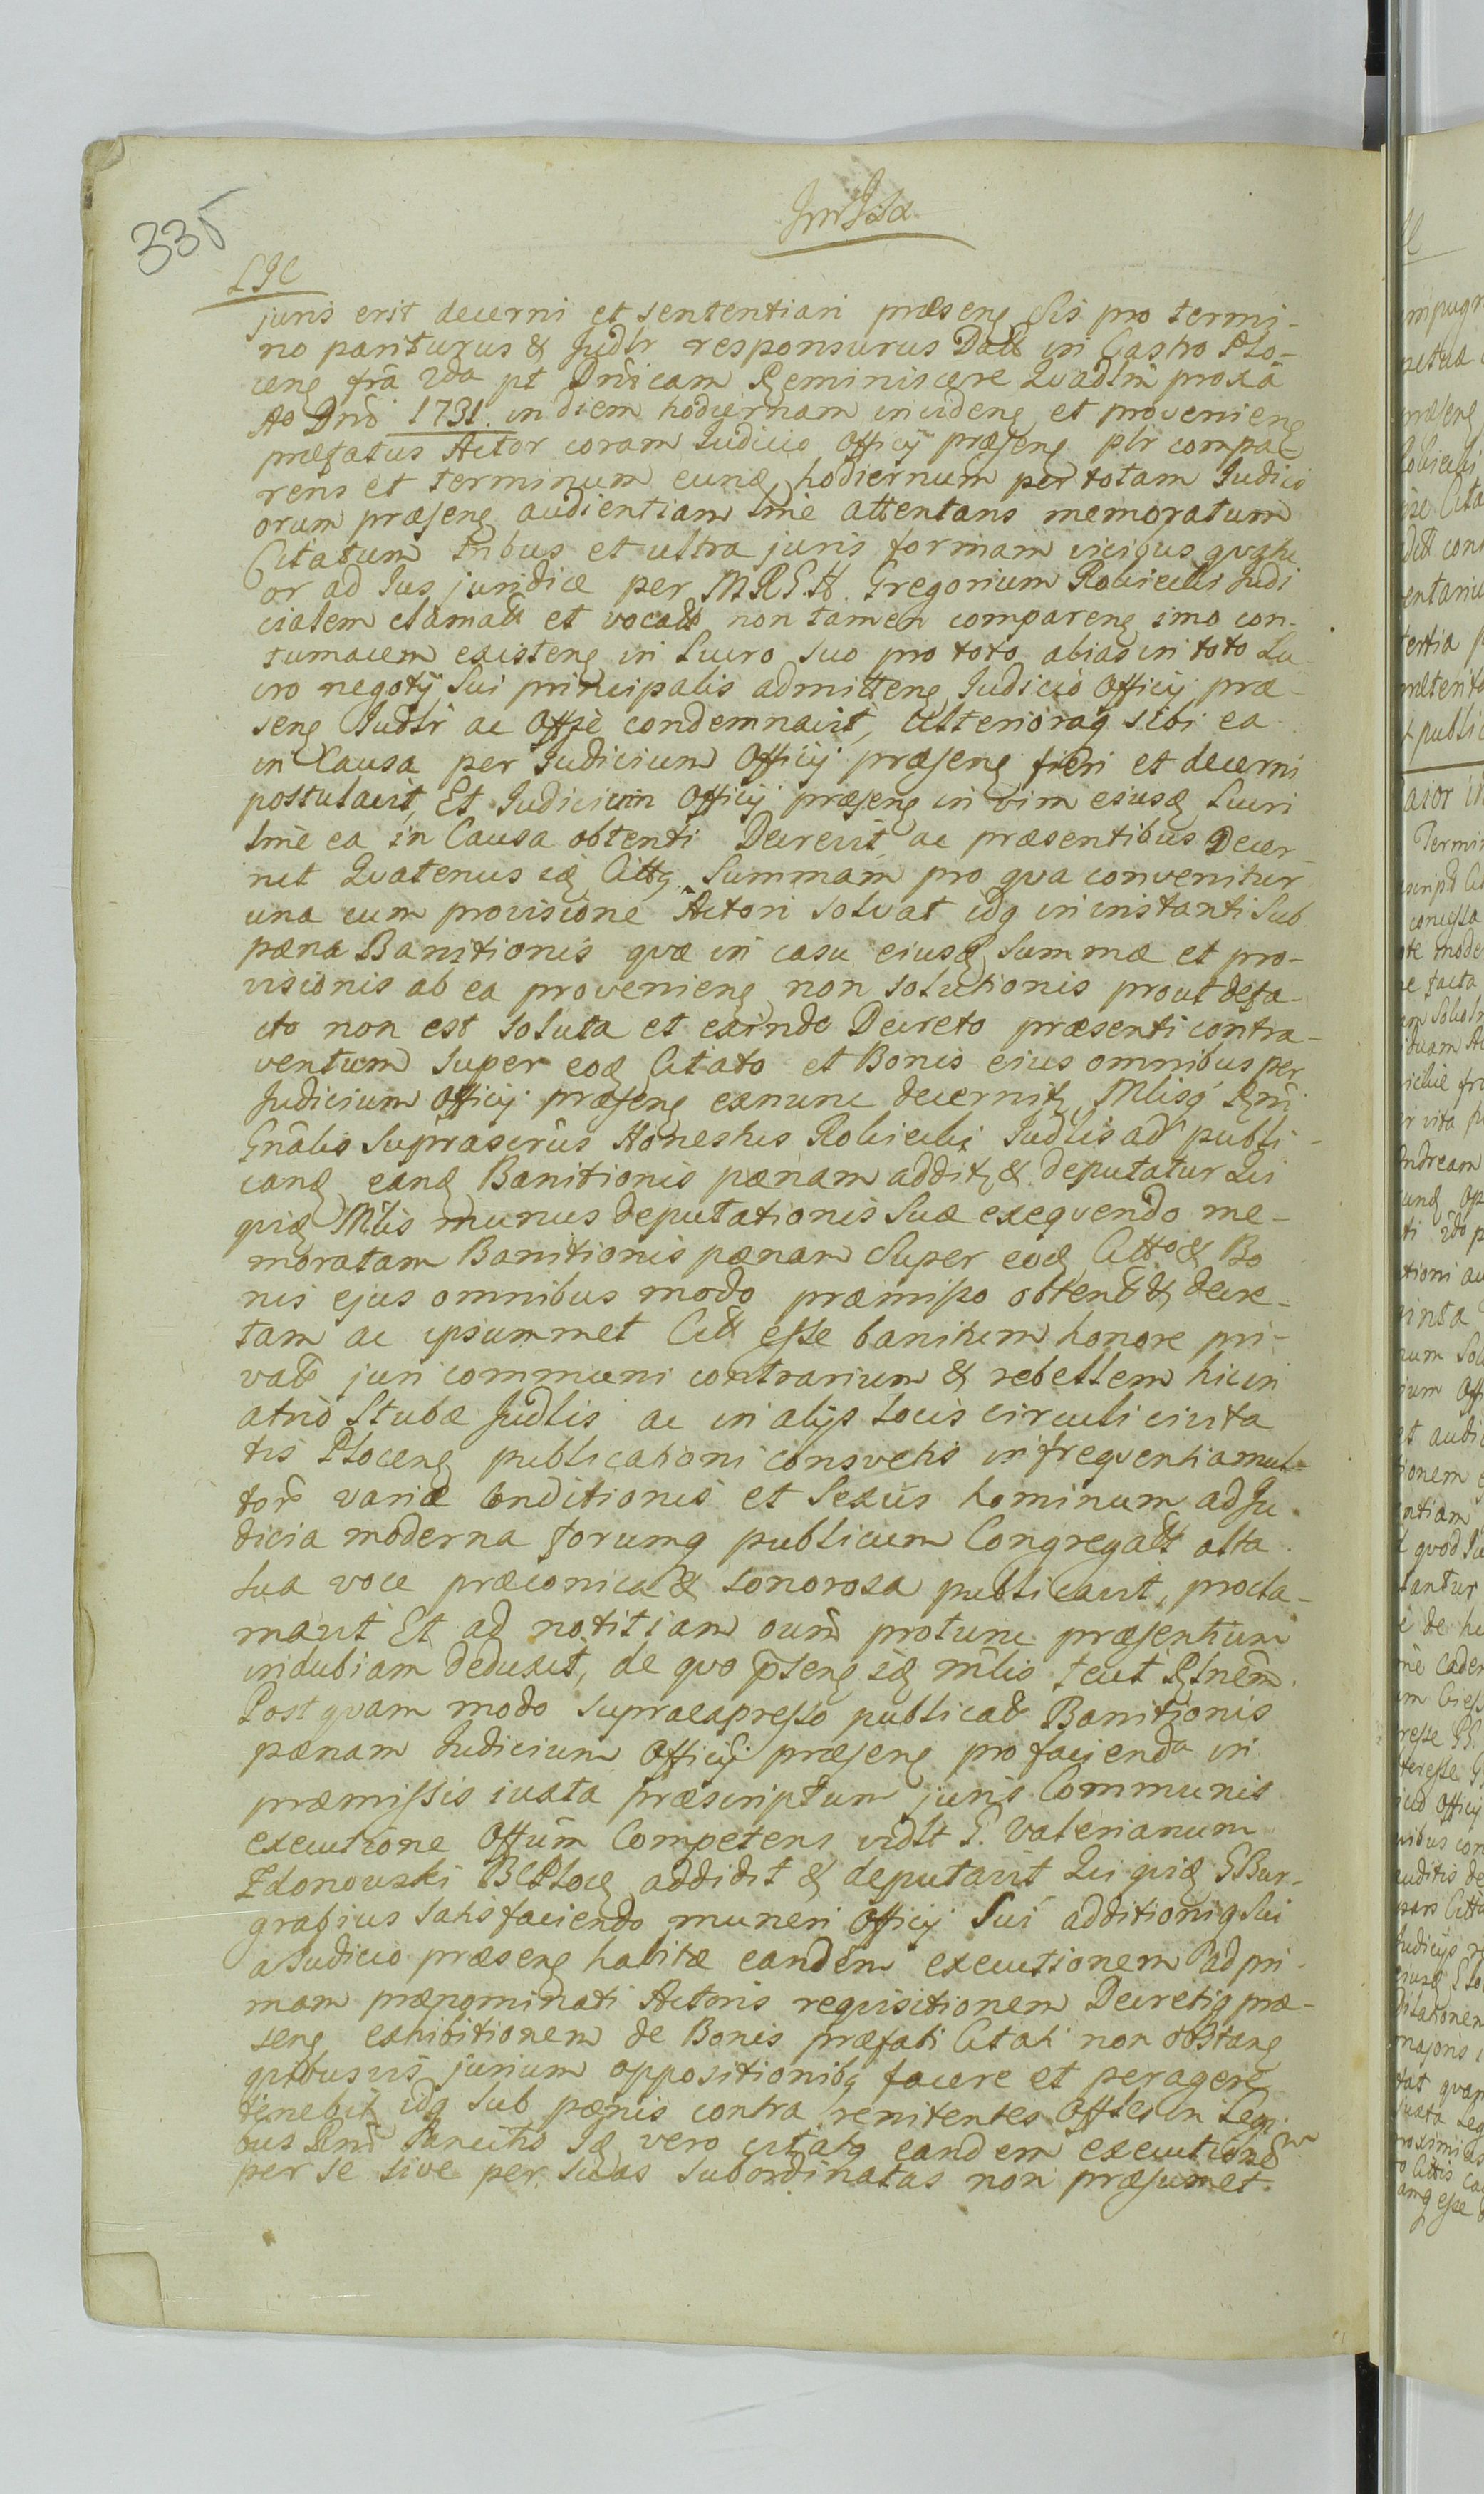 335
LJC
juris erit decerni et sententiari præsenę sis pro termi-
no pariturus & Judlr responsurus Datt in Castro Plo-
cenę fra 2da pt Dnicam Reminiscere Quadlm proxa
Ao Dni 1731. in diem hodiernam incidenę et provenienę
præfatus Actor coram Judicio Officij præsenę plr compa-
rens et terminum eunę hodiernum per totam Judici
orum præsenę audientiam lme attentans memoratum
Citatum tribus et ultra juris formam vicibus
or ad Jus juridice per M.R.G.H. Gregorium Rolirecki Judi
cialem clamatt et vocatt non tamen comparenę imo con-
tumacem existenę in Lucro suo pro toto alias in toto Lu-
cro negotij sui principalis admittenę Judicio Officij præ-
senę Judlr ac Offse condemnavit, Ulterioraq sibi ea
in Causa per Judicium Officij præsenę fieri et decerni
postulavit, Et Judicium Officij præsenę in vim ejusę Lucri
lme ea in Causa obtenti Decrevit ac præsentibus Decer-
nit Quatenus ię Cittq Summam pro qva convenitur
una cum provisione Actori solvat idq in instanti sub
pæna Banitionis qvæ in casu eiusę summæ et pro-
visionis ab ea provenienę non solutionis prout defa-
cto non est soluta et exinde Decreto præsenti contra-
ventum super eoę Citato et Bonis eius omnibus per
Judicium Officij præsenę exnunc decernitę, Mlisq Rni
Gnalis Suprascrus Honestus Rolirecki Judlis ad publi-
canę eanę Banitionis pænam additę & deputatur Qui
qvię Mlis munus deputationis suæ exeqvendo me-
moratam Banitionis pænam super eoę Citto & Bo
nis ejus omnibus modo præmisso obtent & decre-
tam ac ipsummet Citt esse banitum honore pri-
vatt juri communi contrarium & rebellem hic in
atrio Stubæ Judlis ac in alijs locis circuli civita
tis Plocenę publicationi consvetis in freqventia mul-
tor variæ Conditionis et Sexus hominum ad Ju-
dicia moderna forumq publicum Congregatt alta
sua voce præconica & sonorosa publicavit, procla-
mavit Et ad notitiam oum protunc præsentium
indubiam deduxit, de qvo pstenę ię mlis fecit Rlnem.
Post qvam modo supraexpresso publicatt Banitionis
pænam Judicium Officij præsenę pro facienda in
præmissis iuxta præscriptum juris Communis
executione Offum Competens vidlt G. Valerianum
Zdonowski BCPlocę addidit & deputavit Qui qvię GBur-
grabius satisfaciendo muneri Officij Sui additioniq sui
a Judicio præsenę habitæ eandem executionem ad pri-
mam prænominati Actoris requisitionem Decretiq præ-
senę exhibitionem de Bonis præfati Citati non obstanę
qvibusvis jurium oppositionibq facere et peragere
tenebit idq sub pænis contra renitentes Offles in Legi-
bus Rni Sancitis Ię vero citatq eandem executionem
per se sive per suas subordinatas non præsumet.